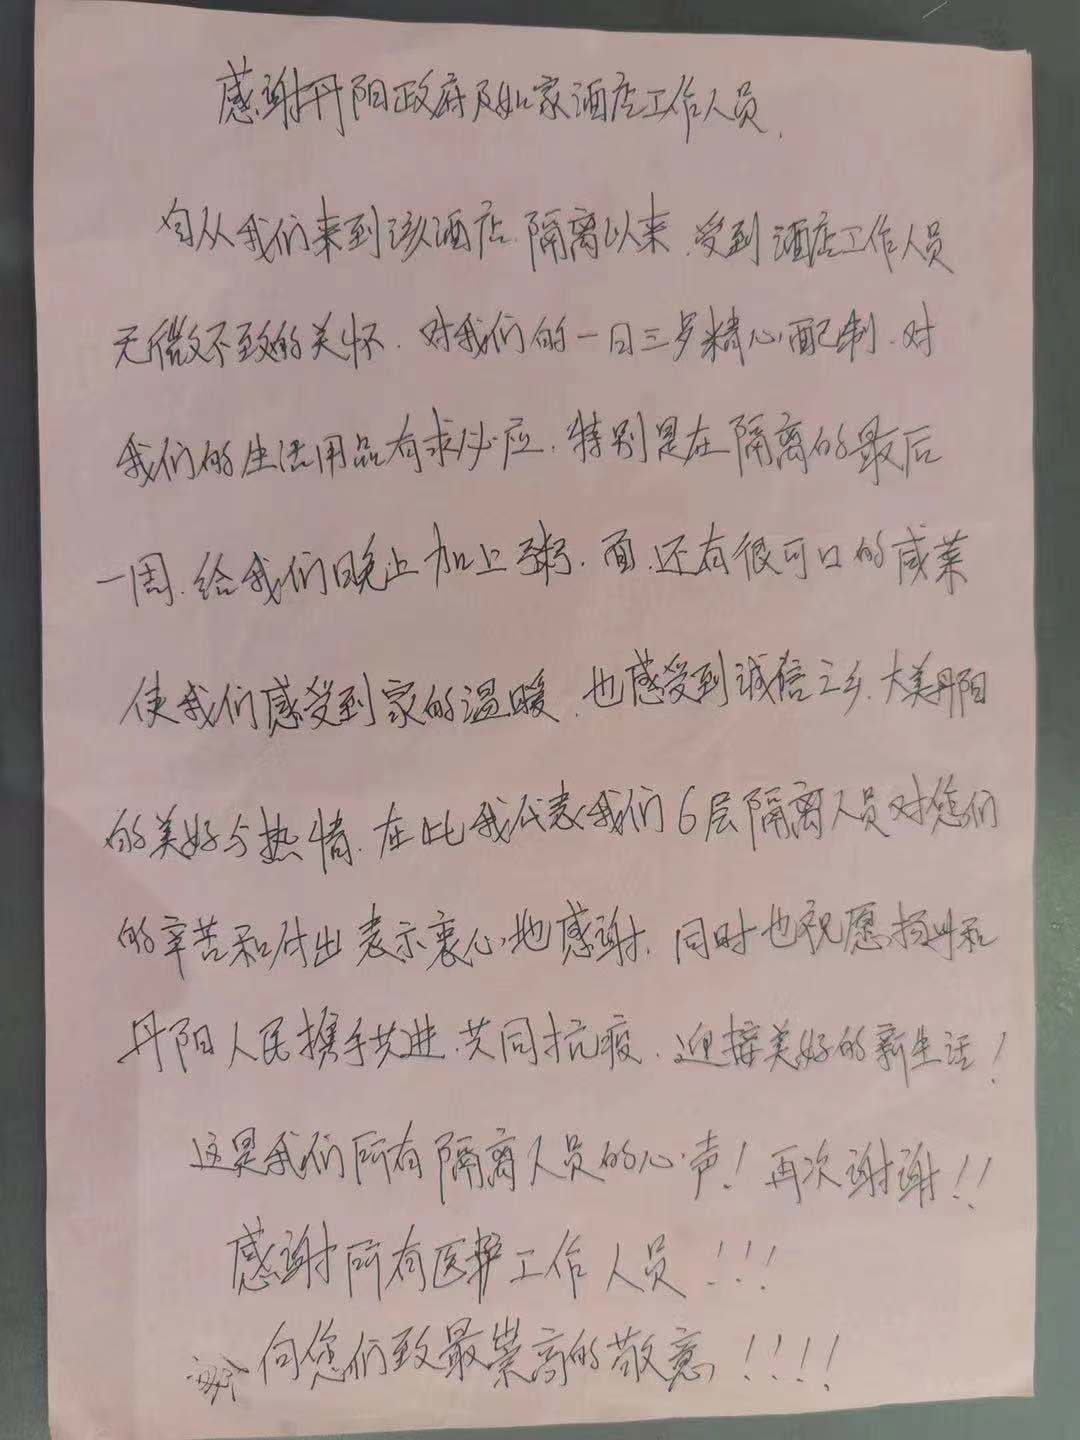 感谢丹阳政府及如家酒店工作人员.
自从我们来到该酒店.隔离以来.受到酒店工作人员
无微不致的关怀.对我们的一日三歺精心配制.对
我们的生活用品有求必应.特别是在隔离的最后
一周.给我们晚上加上粥.面.还有很可口的咸菜
使我们感受到家的温暖.也感受到诚信之乡.大美丹阳
的美好与热情.在此我代表我们6层隔离人员对您们
的辛苦和付出表示衷心地感谢.同时也祝愿扬州和
丹阳人民携手共进.共同抗疫.迎接美好的新生活!
这是我们所有隔离人员的心声!再次谢谢!!
感谢所有医护工作人员!!!
向您们致最崇高的敬意!!!!